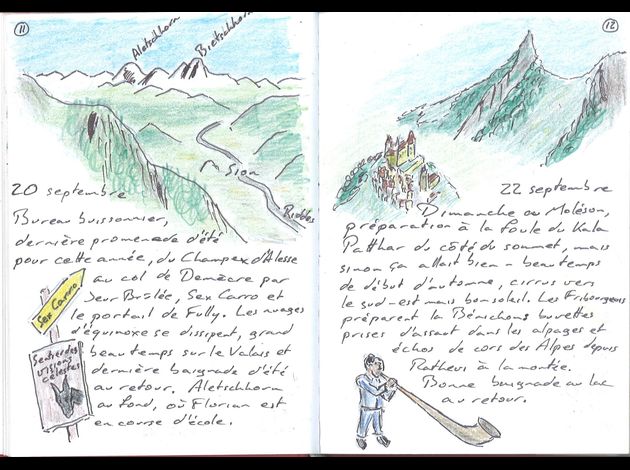 11
Aletschhorn
Bietschhorn
Sion
Riddes
20 septembre
Bureau buissonnier,
dernière promenade d'été
pour cette année, du Champex d'Alesse
au col de Demècre par
Jeur Brûlée, Sex Carro et
le portail de Fully. Les nuages
d'équinoxe se dissipent, grand
beau temps sur le Valais et
dernière baignade d'été
au retour. Aletschhorn
au fond, où Florian est
en course d'école.
Sex Carro
Sentier des
visions
célestes
12
22 septembre
Dimanche au Moléson,
préparation à la foule du Kala
Patthar du côté du sommet, mais
sinon ça allait bien - beau temps
de début d'automne, cirrus vers
le sud-est mais bon soleil. Les Fribourgeois
préparent la Bénichon, buvettes
prises d'assaut dans les alpages et
échos de cors des Alpes depuis
à la montée.
Bonne baignade au lac
au retour.